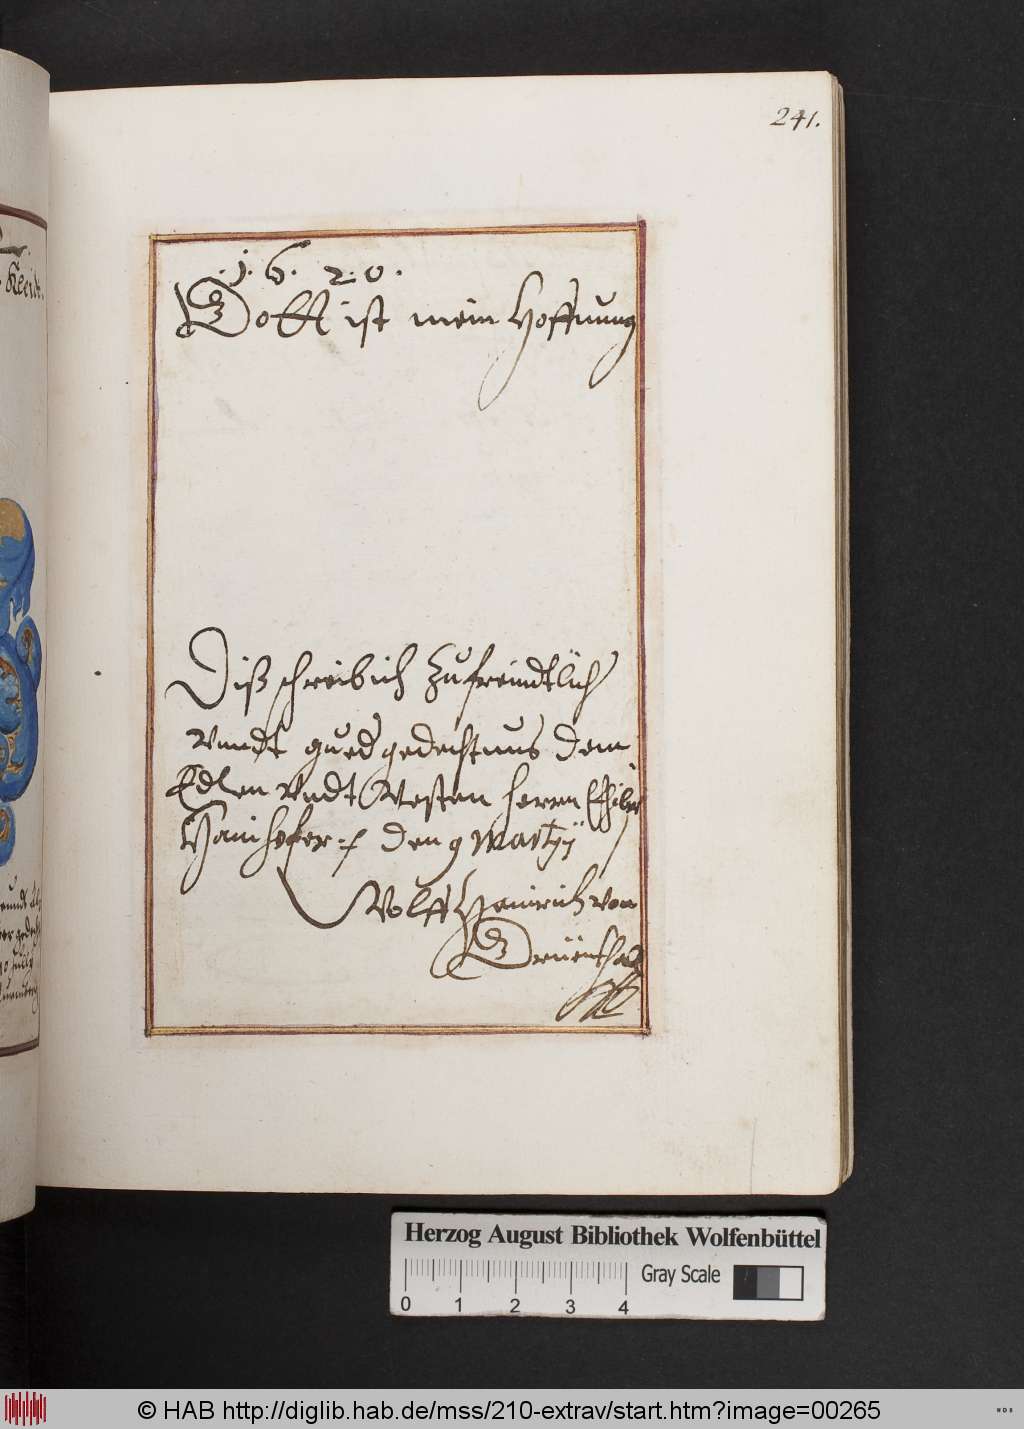 241.
.1.6. 2.0.
Gott ist mein Hoffnung
Diß schreib ich zu freindtlich
vnndt gued gedechtnus dem
Edlen vndt Vesten herrn
Hainhofer den 9 Martÿ
Wolff Heinrich von
Grüenthal
Kleidt.
Herzog August Bibliothek Wolfenbüttel
Gray Scale
0 1 2 3 4
© HAB http://diglib.hab.de/mss/210-extrav/start.htm?image=00265